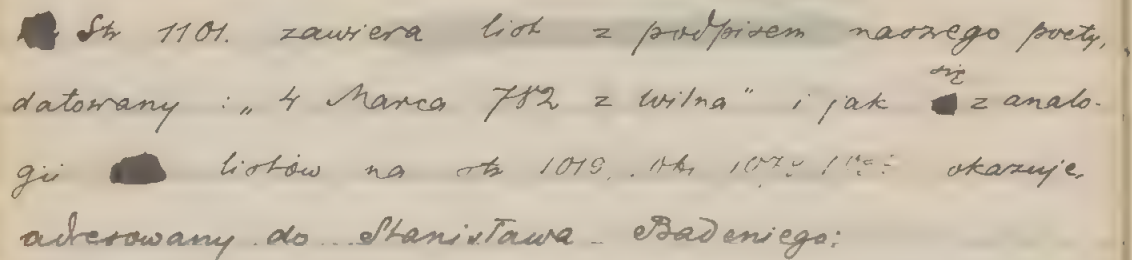 Str 1101. zawiera list z podpisem naszego poety,
datowany : „4 Marca 782 z Wilna" i jak się z analo-
gii listów na str 1019, okazuje,
adresowany do Stanisława Badeniego: